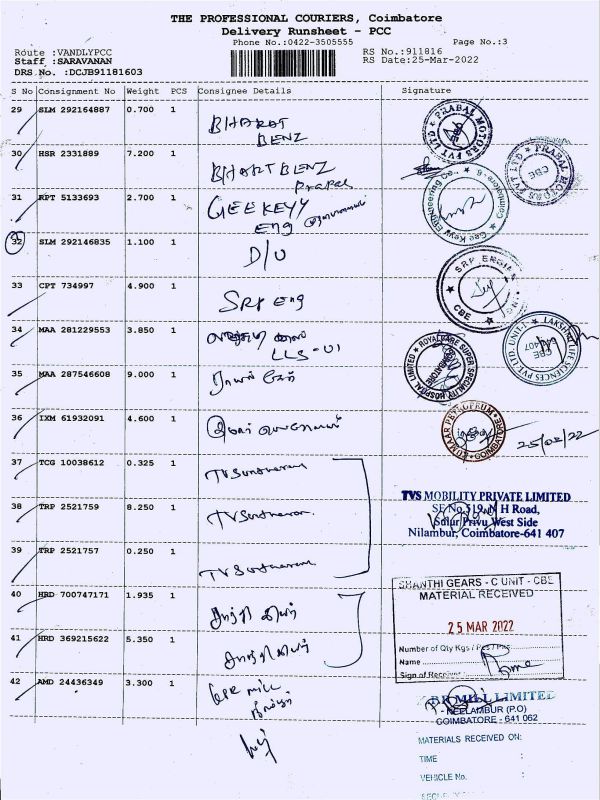 THE PROFESSIONAL COURIERS, Coimbatore
Delivery Runsheet - PCC
Phone No.:0422-3505555
Page No.:3
Route :VANDLYPCC
Staff :SARAVANAN
DRS No. :DCJB91181603
RS No.:911816
RS Date:25-Mar-2022
S No Consignment No Weight PCS Consignee Details Signature
29 SLM 292164887 0.700 1
BHARAT
BENZ
PRABAL MOTORS PVT LTD
CBE
30 HSR 2331889 7.200 1
BHART BENZ
Prabal
PRABAL MOTORS PVT LTD
CBE
31 RPT 5133693 2.700 1
GEE KEYY
Eng
Gee Keyy Engineering Co.,
Coimbatore - 6
32 SLM 292146835 1.100 1
D/U
33 CPT 734997 4.900 1
SRP Eng
SRP
CBE
34 MAA 281229553 3.850 1
LLS-U1
LAKSHMI LIFE SCIENCES PVT LTD. UNIT-I
CBE
641 407
35 MAA 287546608 9.000 1
ராயல் கேர்
ROYALCARE SUPER SPECIALITY HOSPITAL LIMITED
COIMBATORE
36 IXM 61932091 4.600 1
PETROLEUM
COIMBATORE
25/03/22
37 TCG 10038612 0.325 1
TVSundharam
38 TRP 2521759 8.250 1
TVSundharam
TVS MOBILITY PRIVATE LIMITED
SF No.519, N H Road,
Sulur Privu West Side
Nilambur, Coimbatore-641 407
39 TRP 2521757 0.250 1
TVSundharam
40 HRD 700747171 1.935 1
சாந்தி கியர்
SHANTHI GEARS - C UNIT - CBE
MATERIAL RECEIVED
25 MAR 2022
41 HRD 369215622 5.350 1
சாந்தி கியர்
Number of Qty Kgs / Pcs / Pks
Name
Sign of Receiver
42 AMD 24436349 3.300 1
mill
MILL LIMITED
NEELAMBUR (P.O)
COIMBATORE - 641 062
MATERIALS RECEIVED ON:
TIME :
VEHICLE No. :